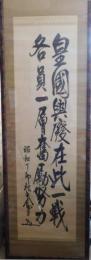 皇國興廢在此戰
各員一層奮勵努力
昭和丁卯秋